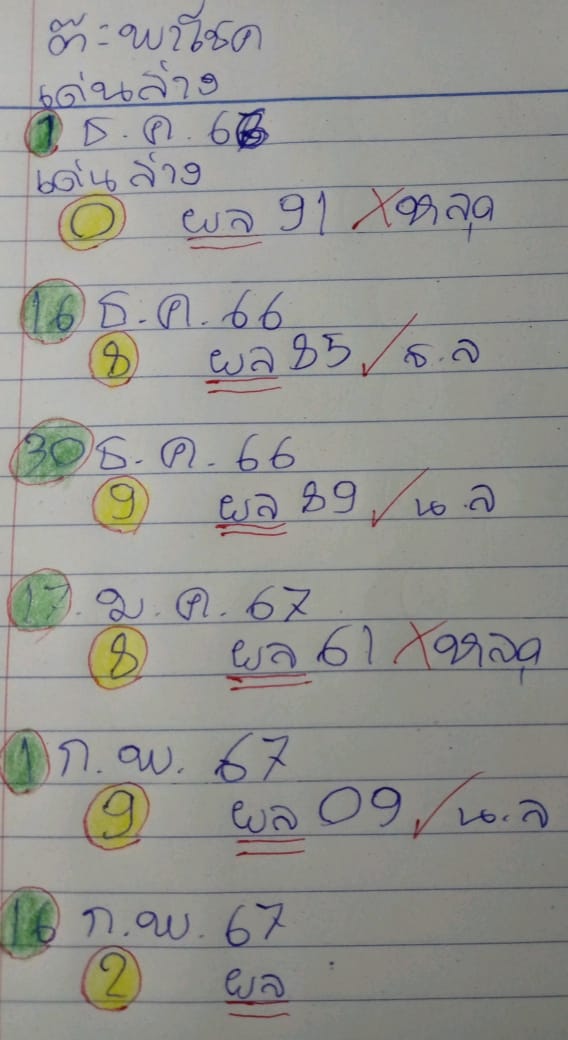 ต๊ะพาโชค
เด่นล่าง
1 ธ.ค. 66
เด่นล่าง
0 ผล 91 ✗ หลุด
16 ธ.ค. 66
8 ผล 85 ✓ ธ.ล
30 ธ.ค. 66
9 ผล 89 ✓ น.ล
17. ม.ค. 67
8 ผล 61 ✗ หลุด
1 ก.พ. 67
9 ผล 09 ✓ น.ล
16 ก.พ. 67
2 ผล